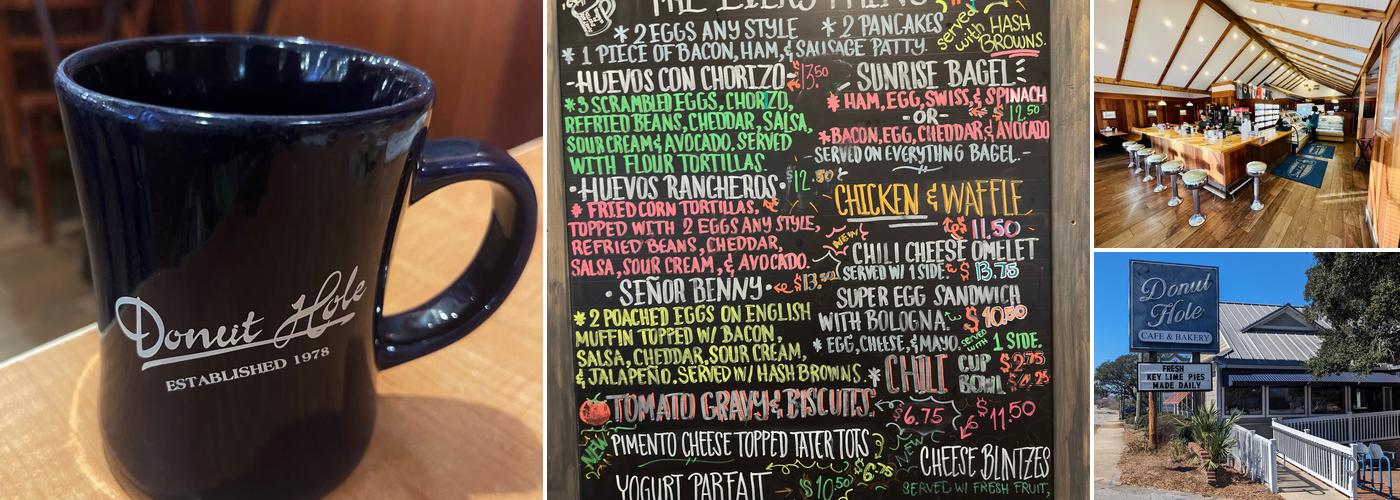 Donut Hole
ESTABLISHED 1978
THE EVERYTHING
* 2 EGGS ANY STYLE * 2 PANCAKES
* 1 PIECE OF BACON, HAM, & SAUSAGE PATTY.
served with HASH BROWNS.
-HUEVOS CON CHORIZO- $13.50
* 3 SCRAMBLED EGGS, CHORIZO,
REFRIED BEANS, CHEDDAR, SALSA,
SOUR CREAM & AVOCADO. SERVED
WITH FLOUR TORTILLAS.
•HUEVOS RANCHEROS• $12.50
* FRIED CORN TORTILLAS,
TOPPED WITH 2 EGGS ANY STYLE,
REFRIED BEANS, CHEDDAR,
SALSA, SOUR CREAM, & AVOCADO.
• SEÑOR BENNY •
* 2 POACHED EGGS ON ENGLISH
MUFFIN TOPPED W/ BACON,
SALSA, CHEDDAR, SOUR CREAM,
& JALAPEÑO. SERVED W/ HASH BROWNS.
TOMATO GRAVY & BISCUITS.
$6.75 $11.50
NEW
PIMENTO CHEESE TOPPED TATER TOTS
$6.75
YOGURT PARFAIT $10.50
SUNRISE BAGEL
* HAM, EGG, SWISS, & SPINACH
-OR- $12.50
* BACON, EGG, CHEDDAR & AVOCADO
-SERVED ON EVERYTHING BAGEL.-
CHICKEN & WAFFLE
$11.50
NEW
CHILI CHEESE OMELET
SERVED W/ 1 SIDE. $13.75
SUPER EGG SANDWICH
WITH BOLOGNA. $10.50
* EGG, CHEESE, & MAYO. SERVED WITH 1 SIDE.
* CHILI CUP $2.75
BOWL $4.25
CHEESE BLINTZES
SERVED W/ FRESH FRUIT,
Donut
Hole
CAFE & BAKERY
FRESH
KEY LIME PIES
MADE DAILY